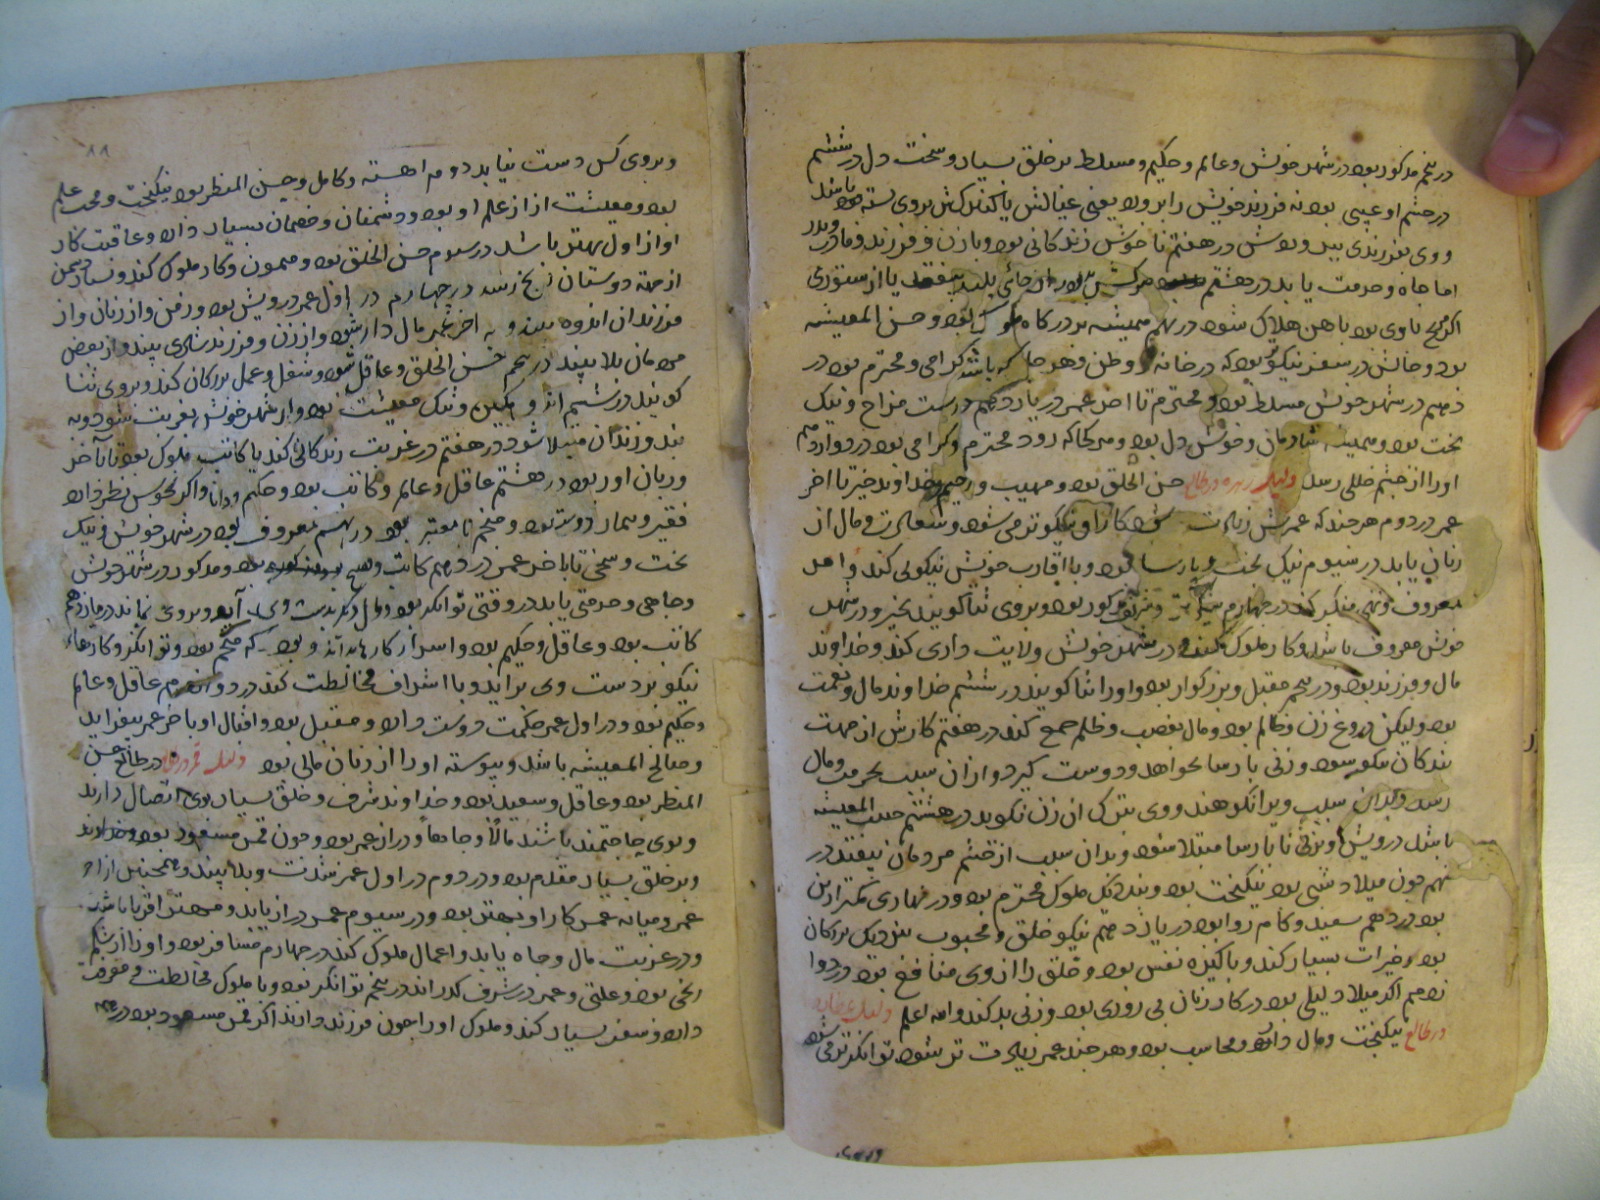 در پنجم مذکور بود در شهر خویش و عالم و حکیم و مسلط بر خلق بسیار و سخت دل در ششم
در چشم او عیبی بود نه فرزند خویش را یعنی عیالش یا کنیزکش بروی
ووی بفرزندی در هفتم ناخوش زندگانی بود و با زن و فرزند و مادر و پدر
اما جاه و حرمت یابد در هشتم جای بلند بیفتد یا از ستوری
اگر مریخ با وی بود با هن هلاک شود در نهم همیشه بر درگاه ملوک بود و حسن المعیشه
بود و حالش در سفر نیکو بود که در خانه و وطن و هر جا که باشد گرامی و محترم بود در
دهم در شهر خویش مسلط بود و محترم تا آخر عمر در یازدهم درست مزاج و نیک
بخت بود و همیشه شادمان و خوش دل بود و هر کجا که رود محترم و گرامی بود در دوازدهم
او را از چشم خللی رسد دلیل زهره در طالع حسن الخلق بود و مهیب و رحیم و خداوند خیر تا آخر
عمر در دوم هر چند که عمرش زیادت شود کار او نیکوتر می شود و سعادت و مال از
زنان یابد در سیوم نیک بخت و پارسا بود و با اقارب خویش نیکویی کند و امر
معروف و نهی منکر کند در چهارم مذکور بود و بروی ثنا گویند بخیر و در شهر
خویش معروف باشد و کار ملوک کند و در شهر خویش ولایت داری کند و خداوند
مال و فرزند بود و در پنجم مقبل و بزرگوار بود و او را ثنا گویند در ششم خداوند مال و نعمت
بود ولیکن دروغ زن و ظالم بود و مال بغصب و ظلم جمع کند در هفتم کارش از جهت
بندگان نیکو شود و زنی پارسا بخواهد و دوست گیرد و از آن سبب بحرمت و مال
رسد وبدان سبب ویرا نکوهند و وی ترک آن زن نگوید در هشتم المعیشه
باشد درویش و بزنی نا پارسا مبتلا شود و بدان سبب از چشم مردمان بیفتد در
نهم چون میلاد شبی بود نیکبخت بود و بنزدیک ملوک محترم بود و در نهاری کمتر ازین
بود در دهم سعید و کام روا بود در یازدهم نیکو خلق و محبوب بنزدیک بزرگان
بود و خیرات بسیار کند و پاکیزه نفس بود و خلق را از وی منافع بود در دوا
زدهم اگر میلاد لیلی بود در کار زنان بی روزی بود و زنی بد کند والله اعلم دلیل عطارد
در طالع نیکبخت و مال دار و محاسب بود و هر چند عمر زیادت تر شود توانگرتر می شود
و بروی

٨٨
و بروی کس دست نیابد دوم آهسته و کامل و حسن المنظر بود نیکبخت و محب علم
بود و معیشت از علم او بود و دشمنان و خصمان بسیار دارد و عاقبت کار
او از اول بهتر باشد در سیوم حسن الخلق بود و میمون و کار ملوک کند و
از جهة دوستان رنج رسد در چهارم در اول عمر درویش بود و از زنان و از
فرزندان اندوه بیند و به آخر عمر مال دار شود و از زن و فرزند شادی بیند و از بعض
مردمان بلا بیند در پنجم حسن الخلق و عاقل شود و شغل و عمل بزرگان کند و بروی ثنا
گویند در ششم و تنگ معیشت بود و از شهر خویش بغربت شود و به
بند و زندان مبتلا شود در هفتم در غربت زندگانی کند یا کاتب ملوک بود تا آخر
و زیان آور بود در هشتم عاقل و عالم و کاتب بود و حکیم و دانا و اگر نحوس نظر دارد
فقیر و بیمار بود و منجم نا معتبر بود در نهم معروف بود در شهر خویش و نیک
بخت و سخی تا باخر عمر در دهم کاتب بود و مذکور در شهر خویش
و جاهی و حرمتی یابد در وقتی توانگر بود و مال وی آید و بروی نماند در یازدهم
کاتب بود و عاقل و حکیم بود و اسرار کارها داند و بود که منجم بود و توانگر و کارهاء
نیکو بر دست وی برآید و با اشراف مخالطت کند در دوازدهم عاقل و عالم
و حکیم بود و در اول عمر حکمت دوست دارد و مقبل بود و اقبال او باخر عمر بیفزاید
و صالح المعیشه باشد و پیوسته او را از زنان مالی بود دلیل قمر در طالع حسن
المنظر بود و عاقل و سعید بود و خداوند شرف و خلق بسیار بوی اتصال دارند
و بوی حاجتمند باشند مالاً و جاهاً و دراز عمر بود و چون قمر مسعود بود و خداوند
و بر خلق بسیار مقدم بود و در دوم در اول عمر شدت و بلا بیند و همچنین از آخر
عمر و میانه عمر کار او بهتر بود و در سیوم عمر دراز یابد و مهتر اقربا باشد
و در غربت مال و جاه یابد و اعمال ملوک کند در چهارم مسافر بود و او را از شکم
رنجی بود و علتی و عمر در شرف گذراند در پنجم توانگر بود و با ملوک مخالطت و معرفت
دارد و سفر بسیار کند و ملوک او را چون فرزند دارند اگر قمر مسعود بود در